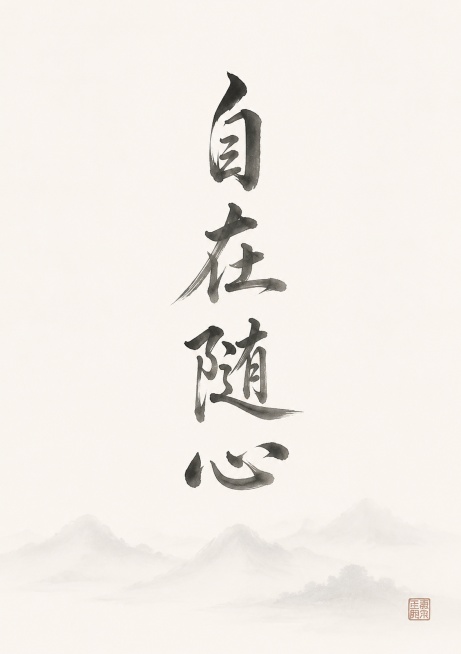 自在随心